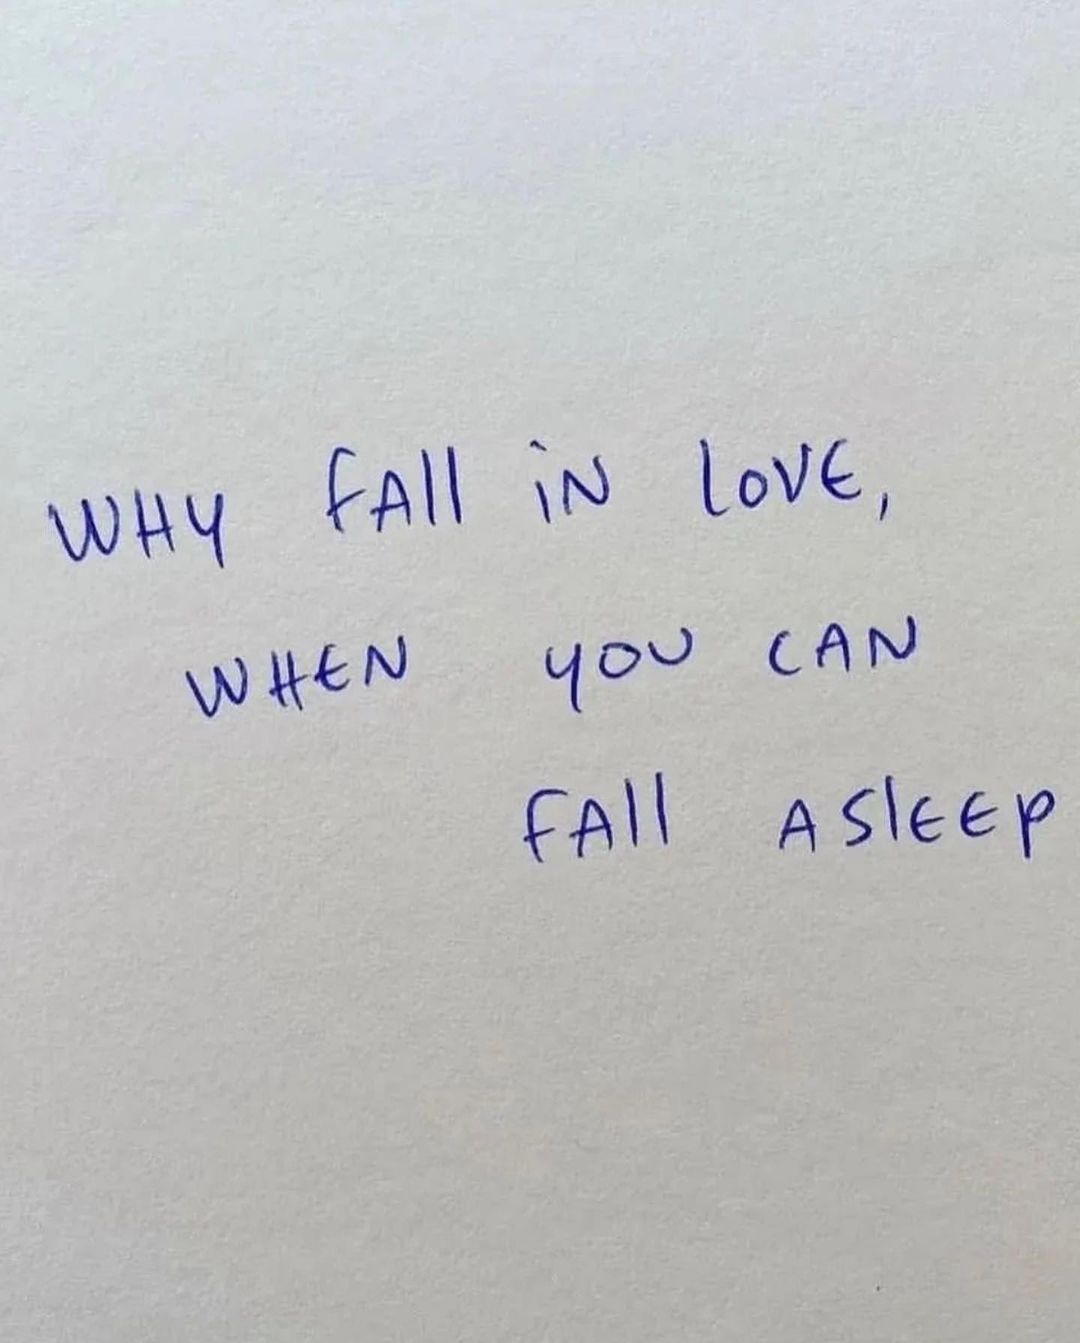 WHY fAll iN lOVE,
WHEN YOU CAN
fAll ASlEEP